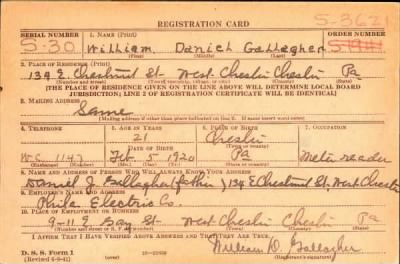 REGISTRATION CARD
S-3621
SERIAL NUMBER 1. NAME (Print) ORDER NUMBER
S-30 William Daniel Gallagher
(First) (Middle) (Last)
2. PLACE OF RESIDENCE (Print)
134 E. Chestnut St. West Chester Chester Pa
(Number and street) (Town, township, village, or city) (County) (State)
[THE PLACE OF RESIDENCE GIVEN ON THE LINE ABOVE WILL DETERMINE LOCAL BOARD
JURISDICTION; LINE 2 OF REGISTRATION CERTIFICATE WILL BE IDENTICAL]
3. MAILING ADDRESS
Same
[Mailing address if other than place indicated on line 2. If same insert word same]
4. TELEPHONE 5. AGE IN YEARS 6. PLACE OF BIRTH 7. OCCUPATION
21 Chester
DATE OF BIRTH (Town or county)
W.C. 1147 Feb 5 1920 Pa Meter reader
(Exchange) (Number) (Mo.) (Day) (Yr.) (State or country)
8. NAME AND ADDRESS OF PERSON WHO WILL ALWAYS KNOW YOUR ADDRESS
Daniel J. Gallagher (father) 134 E Chestnut St, West Chester
9. EMPLOYER'S NAME AND ADDRESS
Phila Electric Co.
10. PLACE OF EMPLOYMENT OR BUSINESS
9-11 E Gay St West Chester Chester Pa
(Number and street or R. F. D. number) (Town) (County) (State)
I AFFIRM THAT I HAVE VERIFIED ABOVE ANSWERS AND THAT THEY ARE TRUE.
William D. Gallagher
D. S. S. Form 1
(Revised 6-9-41) (over) (Registrant's signature)